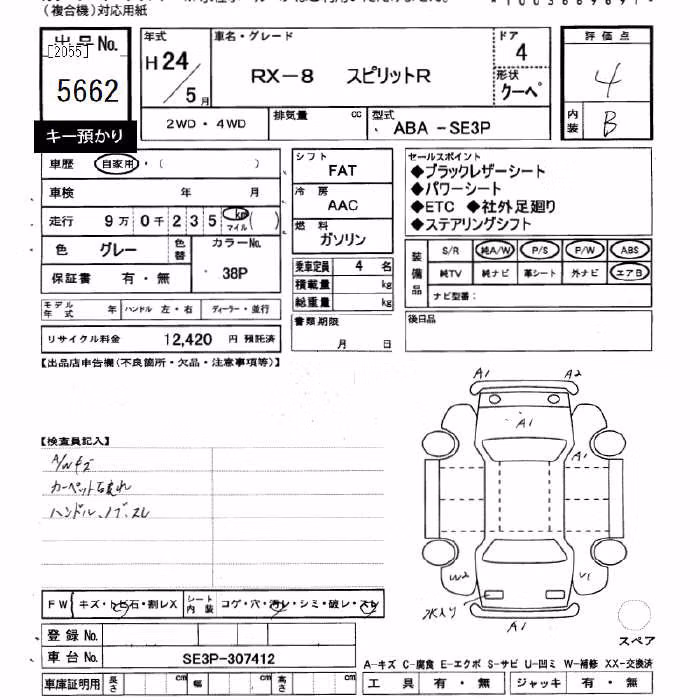 (複合機)対応用紙
出品No.
[2055]
5662
キー預かり
年式
H24/5月
車名・グレード
RX-8 スピリットR
ドア
4
形状
クーペ
評価点
4
内装
B
2WD・4WD
排気量 cc
型式
ABA -SE3P
車歴 自家用・( )
車検 年 月
走行 9万0千235 km マイル ( )
色 グレー 色替 カラーNo.
38P
保証書 有・無
モデル年式 年 ハンドル 左・右 ディーラー・並行
リサイクル料金 12,420 円 預託済
シフト
FAT
冷房
AAC
燃料
ガソリン
乗車定員 4 名
積載量 kg
総重量 kg
書類期限
月 日
セールスポイント
◆ブラックレザーシート
◆パワーシート
◆ETC ◆社外足廻り
◆ステアリングシフト
装備品
S/R 純A/W P/S P/W ABS
純TV 純ナビ 革シート 外ナビ エアB
ナビ型番:
後日品
【出品店申告欄(不良箇所・欠品・注意事項等)】
【検査員記入】
A/Wキズ
カーペット汚れ
ハンドル、ノブ、スレ
A1 A2
A1
A1
W2 V1
水入り
A1
スペア
FW キズ・トビ石・割レX シート内装 コゲ・穴・汚レ・シミ・破レ・スレ
登録No.
車台No. SE3P-307412
車庫証明用 長さ cm 幅 cm 高さ cm
A-キズ C-腐食 E-エクボ S-サビ U-凹ミ W-補修 XX-交換済
工具 有・無 ジャッキ 有・無